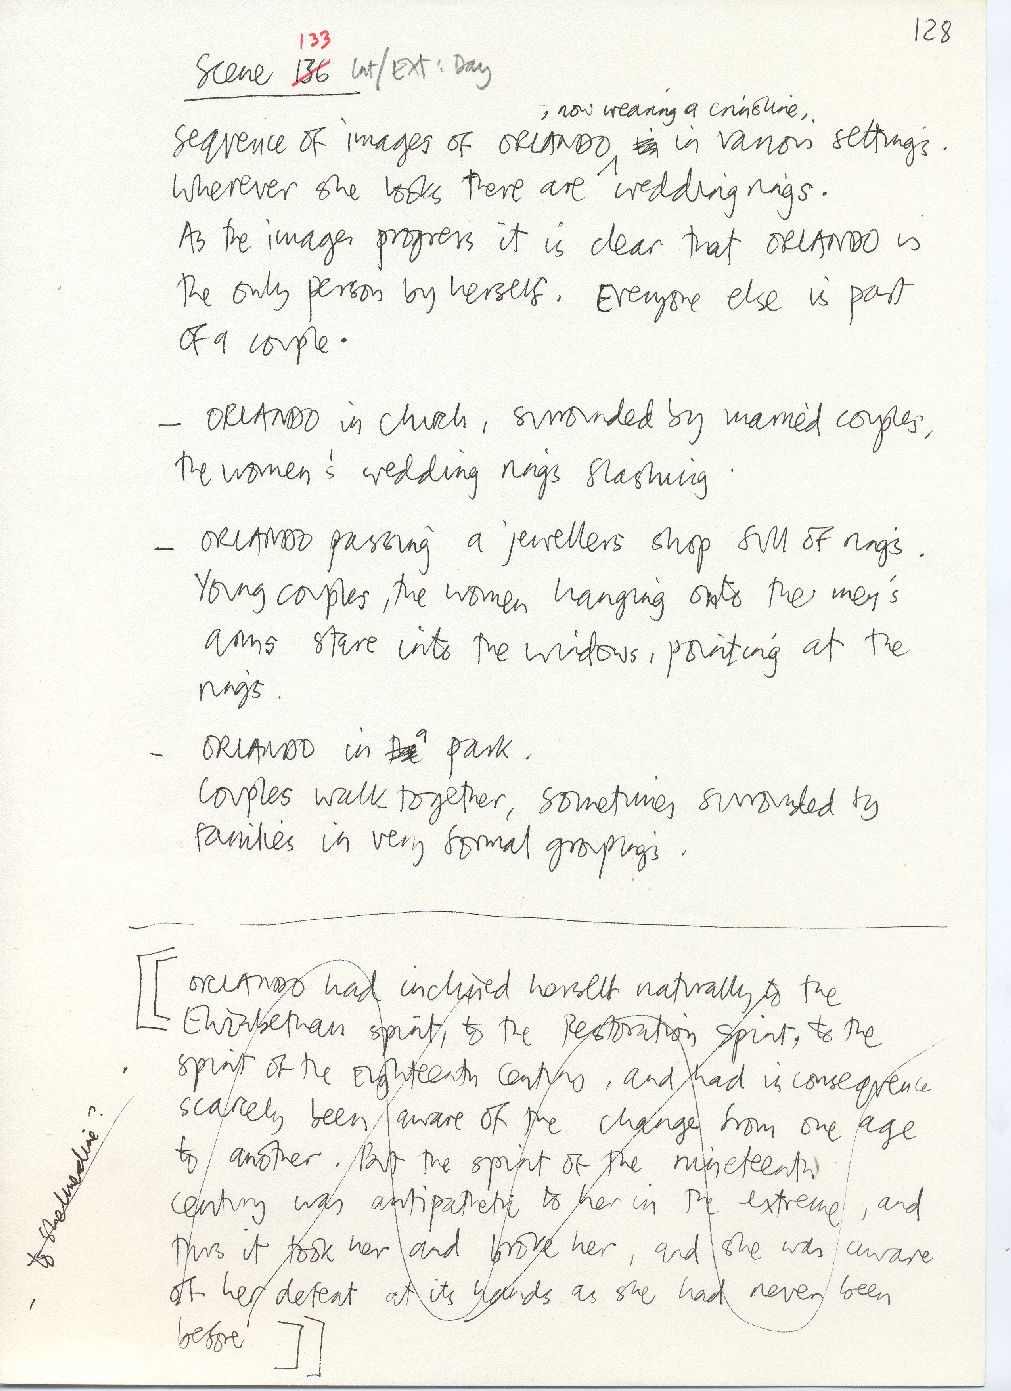 128
133
Scene 136 Int/EXT: Day
, now wearing a crinoline,
Sequence of images of ORLANDO in various settings.
Wherever she looks there are wedding rings.
As the images progress it is clear that ORLANDO is
the only person by herself. Everyone else is part
of a couple.
– ORLANDO in church, surrounded by married couples,
the women's wedding rings flashing.
– ORLANDO passing a jewellers shop full of rings.
Young couples, the women hanging onto the men's
arms stare into the windows, pointing at the
rings.
– ORLANDO in a park.
Couples walk together, sometimes surrounded by
families in very formal groupings.
[[ ORLANDO had inclined herself naturally to the
Elizabethan spirit, to the Restoration spirit, to the
spirit of the eighteenth century, and had in consequence
scarcely been aware of the change from one age
to another. But the spirit of the nineteenth
century was antipathetic to her in the extreme, and
thus it took her and broke her, and she was aware
of her defeat at its hands as she had never been
before ]]
to Shelmerdine?